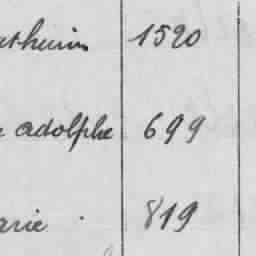 athurin 1520
adolphe 699
arie 819